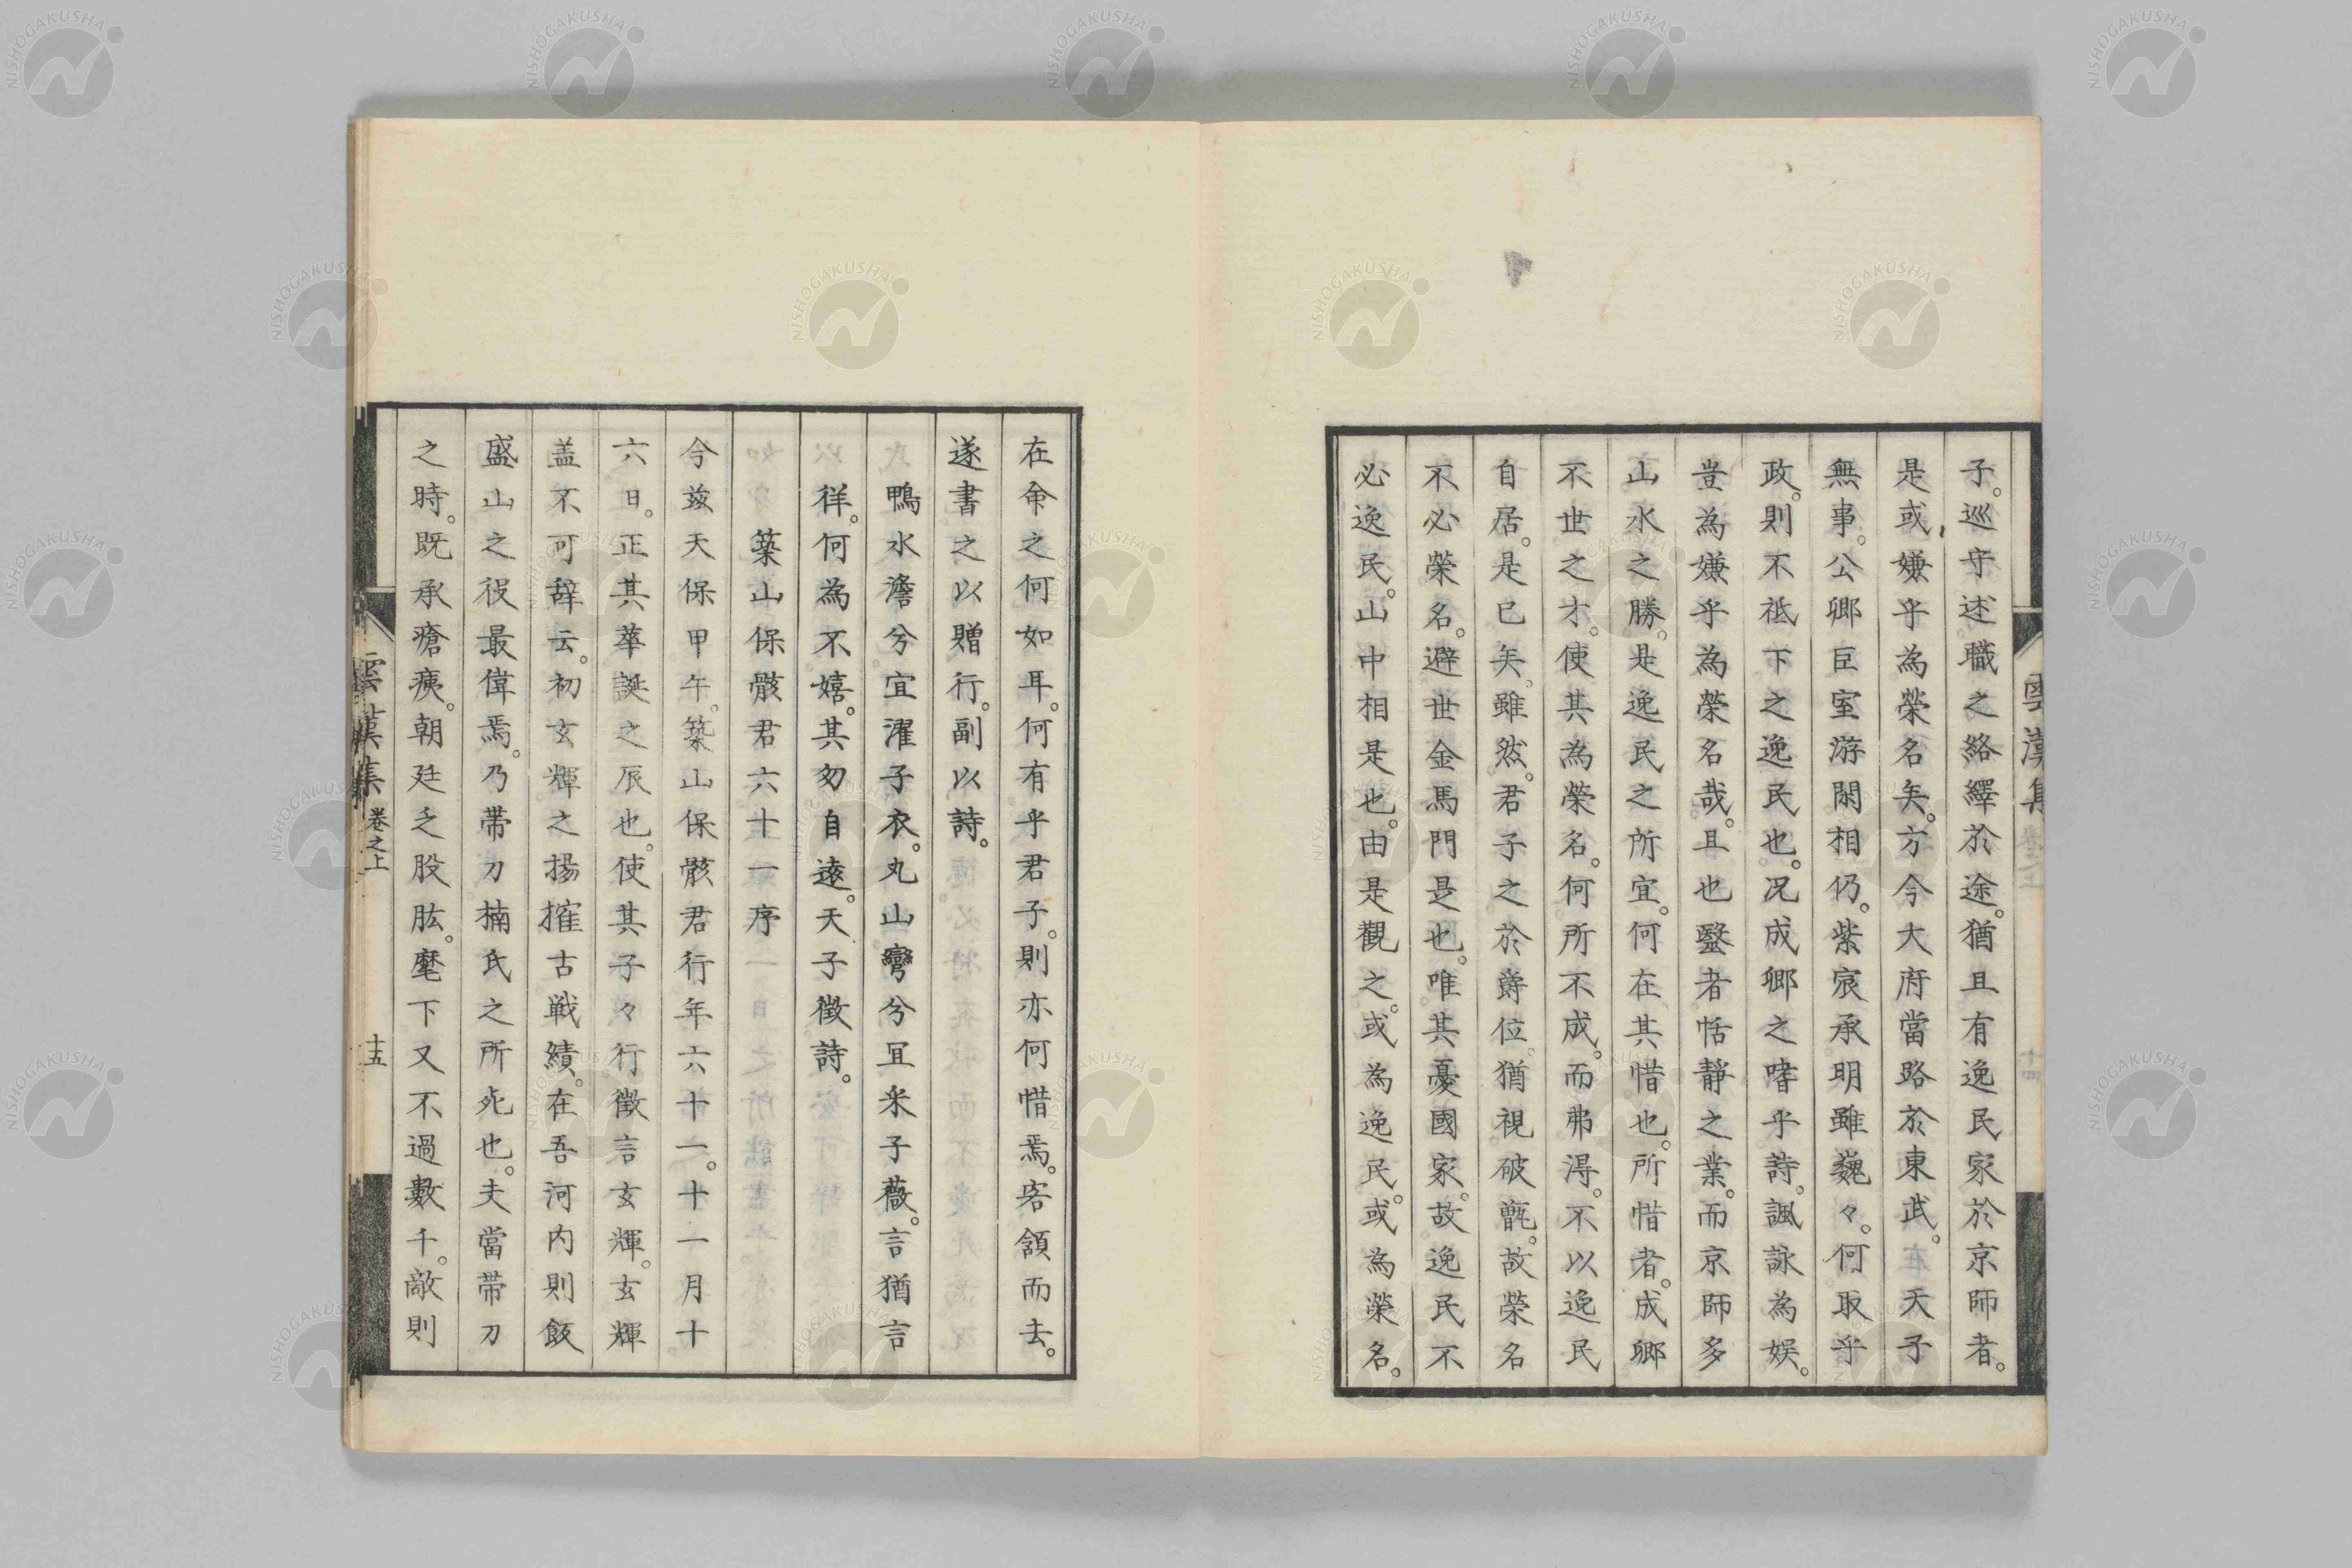 子。巡守述職之絡繹於途。猶且有逸民家於京師者。
是或嫌乎為榮名矣。方今大府當路於東武。在天子
無事。公卿臣室游閑相仍。紫宸承明雖巍々。何取乎
政。則不祗下之逸民也。况成卿之嗜乎詩。諷詠為娯。
豈為嫌乎為榮名哉。且也毉者恬靜之業。而京師多
山水之勝。是逸民之所宜。何在其惜也。所惜者。成卿
不世之才。使其為榮名。何所不成。而弗淂。不以逸民
自居。是已矣。雖然。君子之於爵位。猶視破甑。故榮名
不必榮名。避世金馬門是也。唯其憂國家。故逸民不
必逸民。山中相是也。由是觀之。或為逸民。或為榮名。
雲漢集
在命之何如耳。何有乎君子。則亦何惜焉。客頷而去。
遂書之以贈行。副以詩。
鴨水澹兮宜濯子衣。丸山彎兮冝采子薇。言猶言
祥。何為不嬉。其匆自遠。天子徴詩。
築山保骸君六十一序
今茲天保甲午。築山保骸君行年六十一。十一月十
六日。正其華誕之辰也。使其子々行徴言玄輝。玄輝
盖不可辞云。初玄輝之揚搉古戦績。在吾河内則飯
盛山之役最偉焉。乃帯刀楠氏之所死也。夫當帯刀
之時。既承瘡痍。朝廷乏股肱。麾下又不過數千。敵則
雲漢集 卷之上 十五
NISHOGAKUSHA